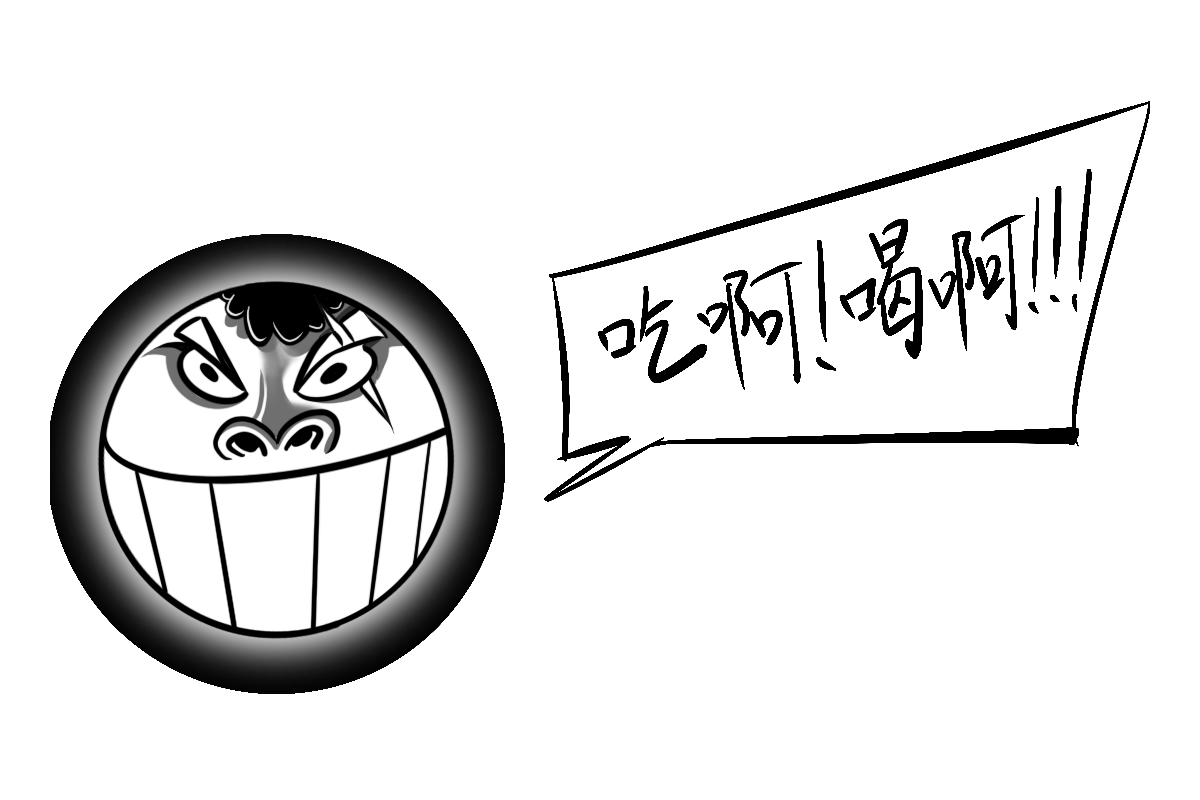 吃啊！喝啊!!!